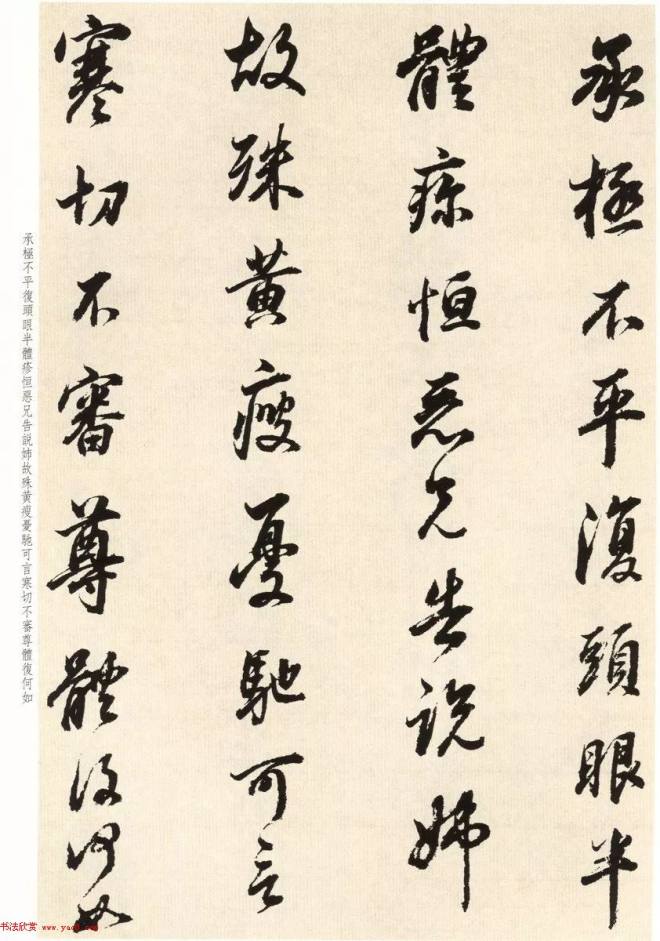 承極不平復頭眼半
體疹恒惡兄告説姊
故殊黃瘦憂馳可言
寒切不審尊體復何如
承極不平復頭眼半體疹恒惡兄告説姊故殊黃瘦憂馳可言寒切不審尊體復何如
书法欣赏 www.yac8.com